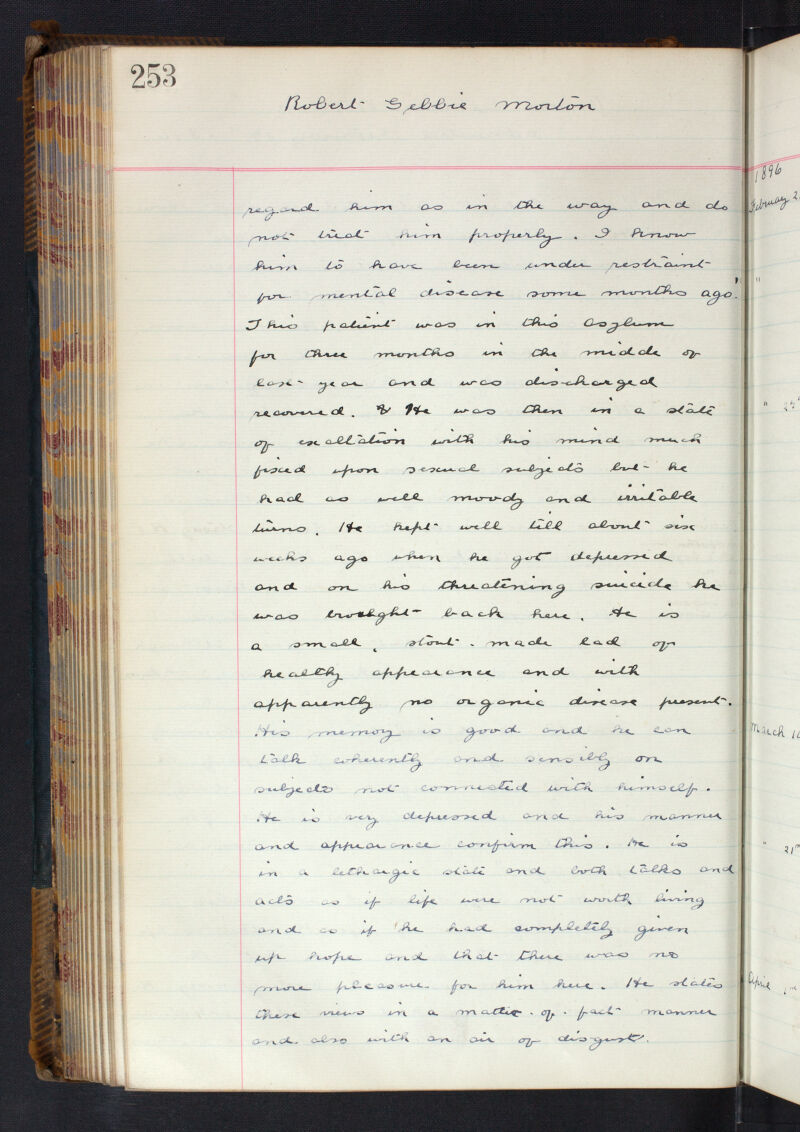 253
Robert Gebbie Morton
regard him as in the way and do
not treat him properly. I know
him to have been under restraint
for mental disease some months ago."
This patient was in this Asylum
for three months in the middle of
last year and was discharged
recovered. & He was then in a state
of exaltation with his mind much
fixed upon sexual subjects but he
had as well moody and irritable
turns. He kept well till about six
weeks ago when he got depressed
and on his threatening suicide he
was brought back here. He is
a small, stout-made lad of
healthy appearance and with
apparently no organic disease present.
His memory is good and he can
talk coherently and sensibly on
subjects not connected with himself.
He is very depressed and his manner
and appearance confirm this. He is
in a lethargic state and both talks and
acts as if life were not worth living
and as if he had completely given
up hope and that there was no
more pleasure for him here. He states
these views in a matter-of-fact manner
and also with an air of disgust.
1896
February 2
"
" 25
March 10
" 21
April 1